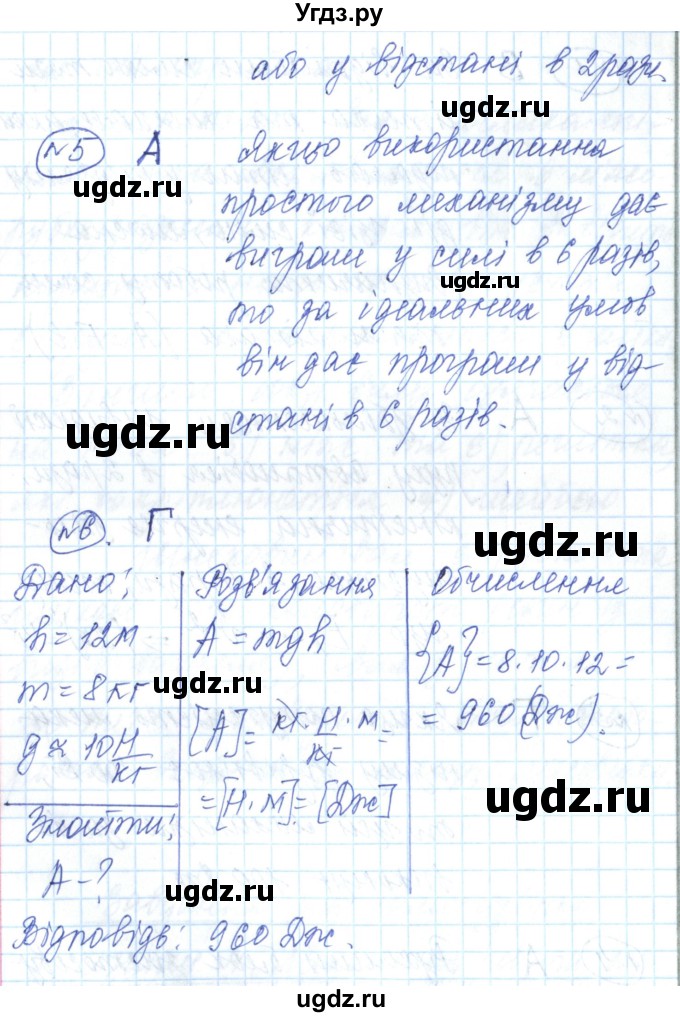 Угдз.ру
або у відстані в 2 рази.
№5 А Якщо використання
простого механізму дає
виграш у силі в 6 разів,
то за ідеальних умов
він дає програш у від-
стані в 6 разів.
№6. Г
Дано:
h = 12м
m = 8кг
g ≈ 10 Н/кг
Знайти:
A - ?
Розв'язання
A = mgh
[A] = кг · Н/кг · м =
= [Н·м] = [Дж]
Обчислення
{A} = 8·10·12 =
= 960 (Дж).
Відповідь: 960 Дж.
ugdz.ru
ugdz.ru
ugdz.ru
ugdz.ru
ugdz.ru
ugdz.ru
ugdz.ru
ugdz.ru
ugdz.ru